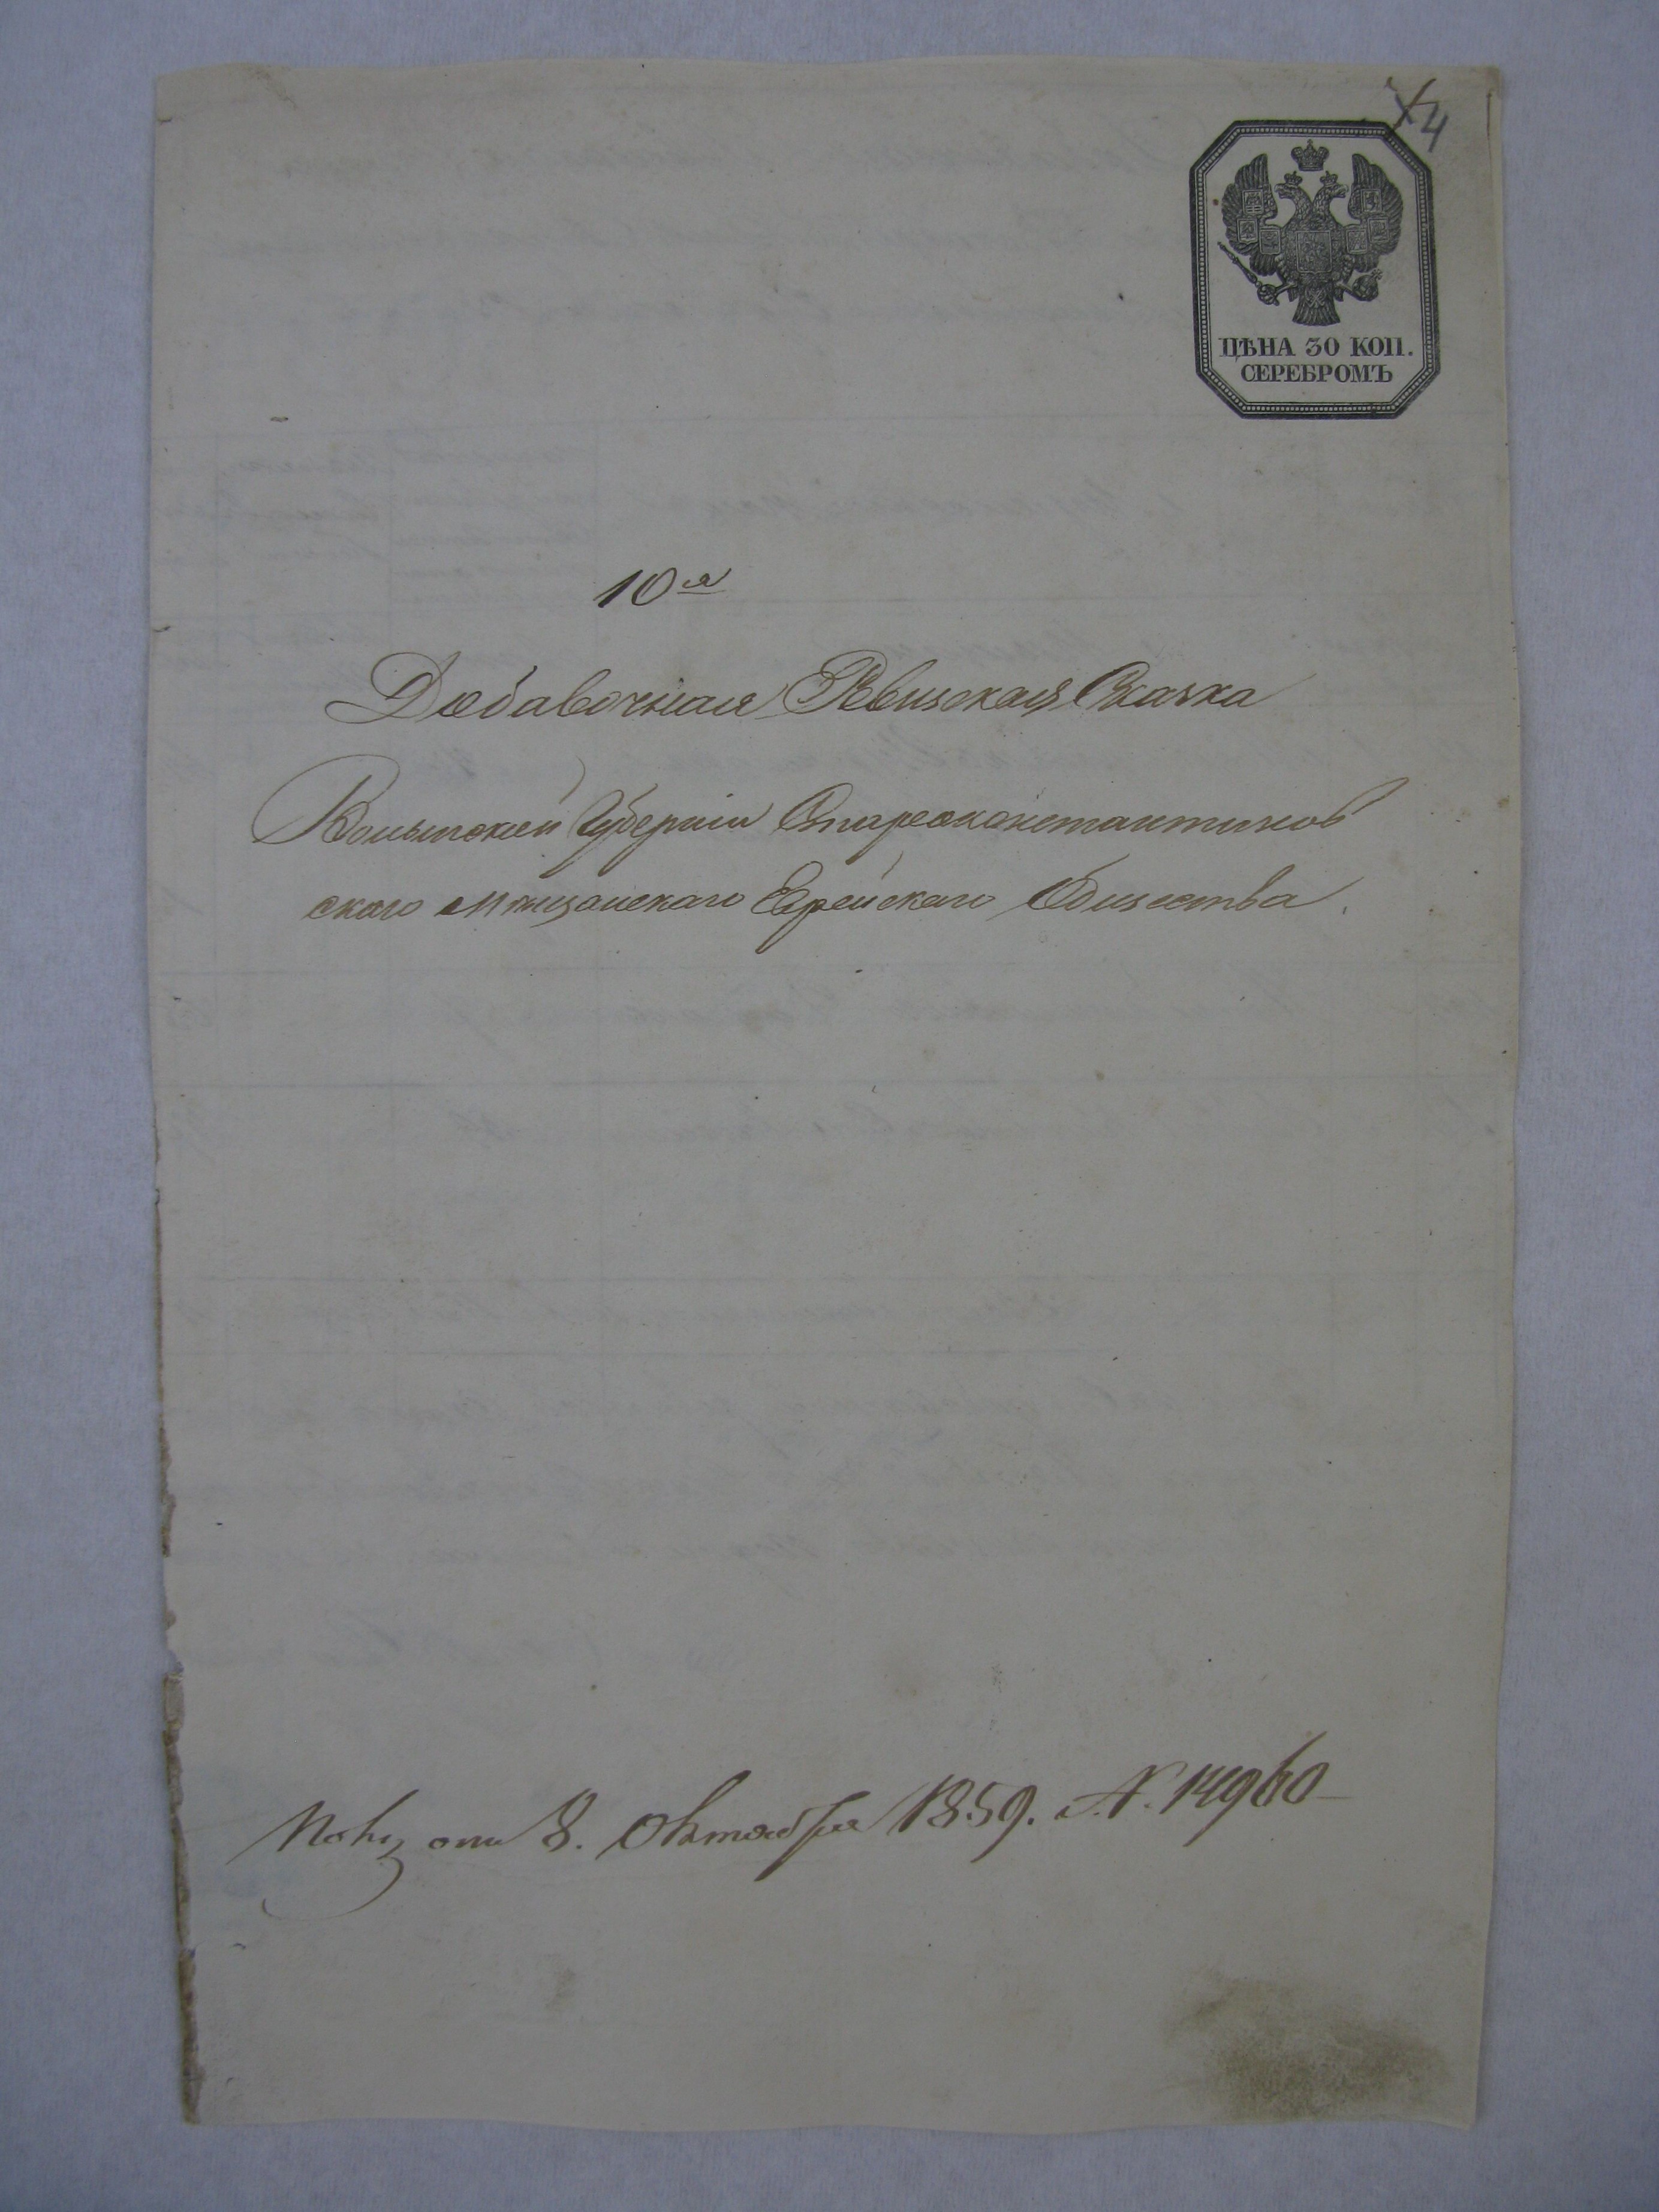 4
ЦѢНА 30 КОП.
СЕРЕБРОМЪ
10я
Добавочная Ревизская Сказка
Волынской Губерніи Староконстантинов
ского мѣщанского Еврейского Общества.
от 8. Октября 1859. N. 14960